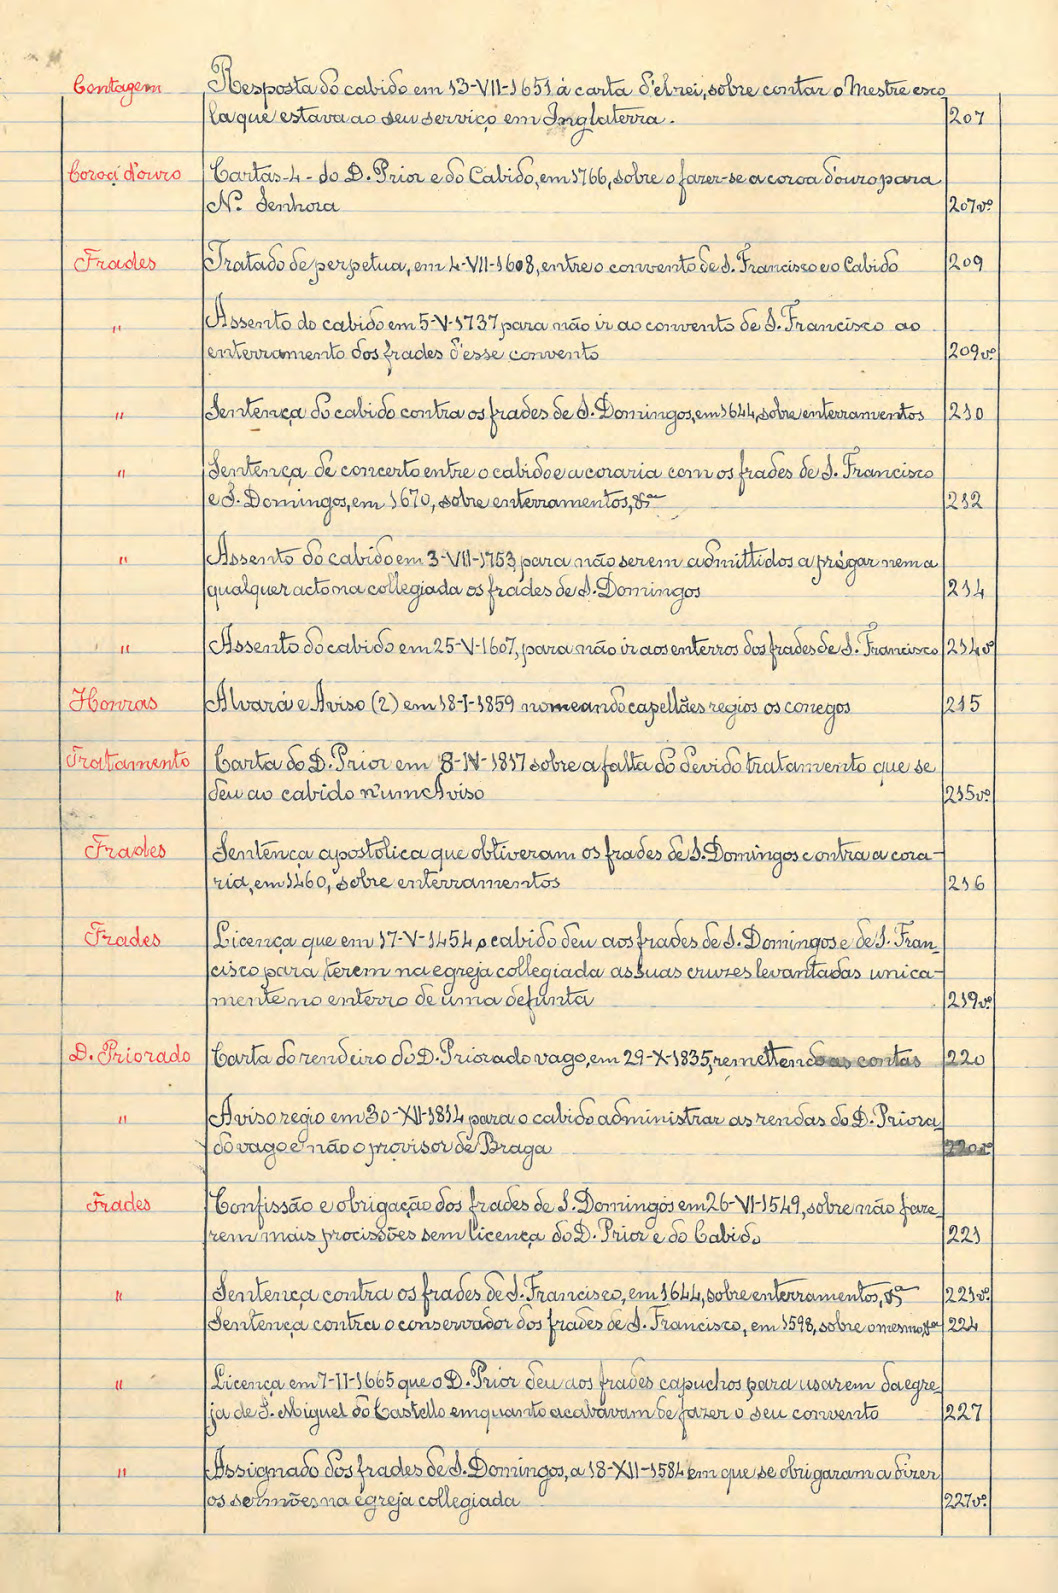 Contagem Resposta do cabido em 13-VII-1651 á carta d'el rei, sobre contar o Mestre esco
la que estava ao seu serviço em Inglaterra. 207
Coroa d'ouro Cartas-4- do D. Prior e do Cabido, em 1766, sobre o fazer-se a coroa d'ouro para
Nª Senhora 207vº
Frades Tratado de perpetua, em 4-VII-1608, entre o convento de S. Francisco e o Cabido 209
" Assento do cabido em 5-V-1737 para não ir ao convento de S. Francisco ao
enterramento dos frades d'esse convento 209vº
" Sentença do cabido contra os frades de S. Domingos, em 1644, sobre enterramentos 210
" Sentença de concerto entre o cabido e a coraria com os frades de S. Francisco
e S. Domingos, em 1670, sobre enterramentos, &ª 212
" Assento do cabido em 3-VII-1753, para não serem admittidos a prégar nem a
qualquer acto na collegiada os frades de S. Domingos 214
" Assento do cabido em 25-V-1607, para não ir aos enterros dos frades de S. Francisco 214vº
Honras Alvará e Aviso (2) em 18-I-1859 nomeando capellães regios os conegos 215
Tratamento Carta do D. Prior em 8-IV-1817 sobre a falta do devido tratamento que se
deu ao cabido n'um Aviso 215vº
Frades Sentença apostolica que obtiveram os frades de S. Domingos contra a cora-
ria, em 1460, sobre enterramentos 216
Frades Licença que em 17-V-1454 o cabido deu aos frades de S. Domingos e de S. Fran-
cisco para terem na egreja collegiada as suas cruzes levantadas unica-
mente no enterro de uma defunta 219vº
D. Priorado Carta do rendeiro do D. Priorado vago, em 29-X-1835, remettendo as contas 220
" Aviso regio em 30-XII-1814 para o cabido administrar as rendas do D. Priora
do vago e não o provisor de Braga 220vº
Frades Confissão e obrigação dos frades de S. Domingos em 26-VI-1549, sobre não faze-
rem mais procissões sem licença do D. Prior e do Cabido 221
" Sentença contra os frades de S. Francisco, em 1644, sobre enterramentos, &ª 221vº
Sentença contra o conservador dos frades de S. Francisco, em 1598, sobre o mesmo, &ª 224
" Licença em 7-II-1665 que o D. Prior deu aos frades capuchos para usarem da egre-
ja de S. Miguel do Castello emquanto acabavam de fazer o seu convento 227
" Assignado dos frades de S. Domingos, a 18-XII-1584 em que se obrigaram a dizer
os sermões na egreja collegiada 227vº